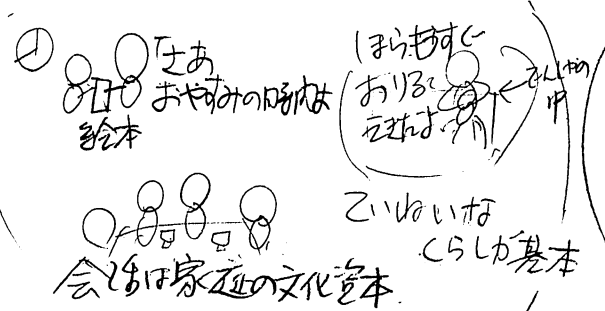 「さあ
おやすみの時間よ
絵本
ほらもうすぐ
おりる
えきだよ
でんしゃの
中
ていねいな
くらしが基本
会話は家庭の文化資本